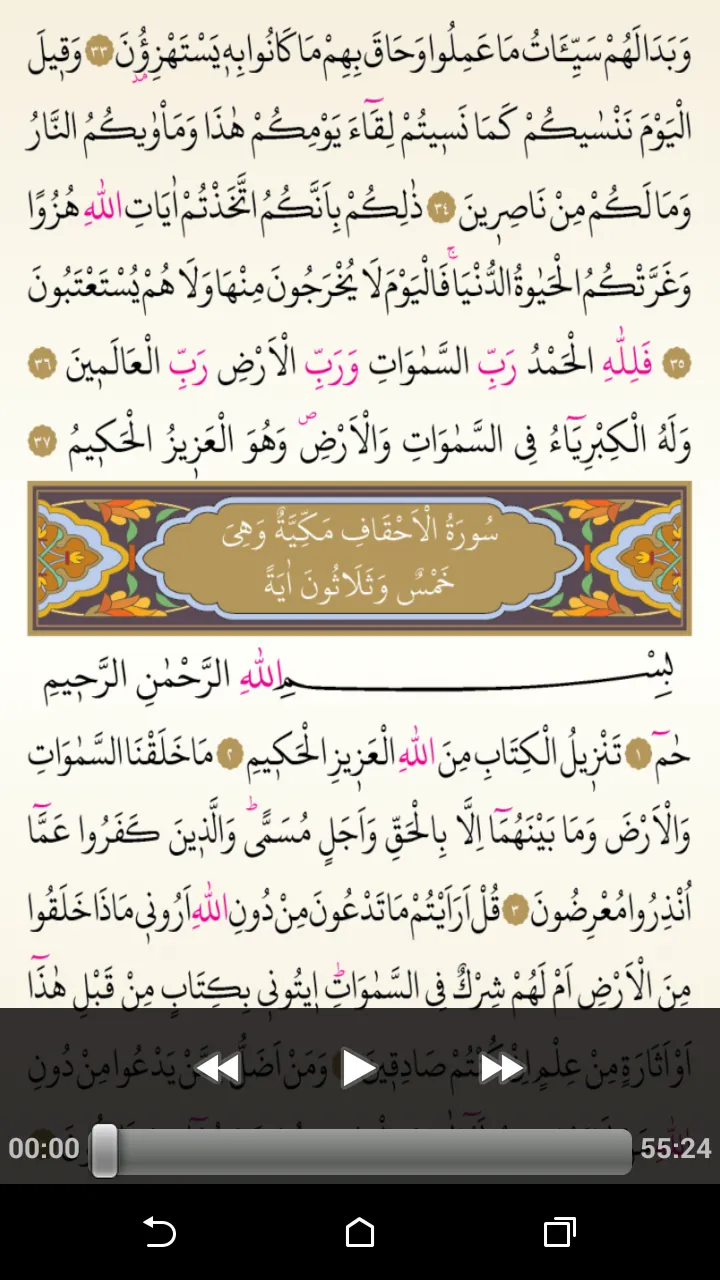 وَبَدَا لَهُمْ سَيِّـَٔاتُ مَا عَمِلُوا وَحَاقَ بِهِمْ مَا كَانُوا بِهٖ يَسْتَهْزِؤُ۫نَ ٣٣ وَقٖيلَ
الْيَوْمَ نَنْسٰيكُمْ كَمَا نَسٖيتُمْ لِقَٓاءَ يَوْمِكُمْ هٰذَا وَمَأْوٰيكُمُ النَّارُ
وَمَا لَكُمْ مِنْ نَاصِرٖينَ ٣٤ ذٰلِكُمْ بِاَنَّكُمُ اتَّخَذْتُمْ اٰيَاتِ اللّٰهِ هُزُوًا
وَغَرَّتْكُمُ الْحَيٰوةُ الدُّنْيَاۚ فَالْيَوْمَ لَا يُخْرَجُونَ مِنْهَا وَلَا هُمْ يُسْتَعْتَبُونَ
٣٥ فَلِلّٰهِ الْحَمْدُ رَبِّ السَّمٰوَاتِ وَرَبِّ الْاَرْضِ رَبِّ الْعَالَمٖينَ ٣٦
وَلَهُ الْكِبْرِيَٓاءُ فِى السَّمٰوَاتِ وَالْاَرْضِۖ وَهُوَ الْعَزٖيزُ الْحَكٖيمُ ٣٧
سُورَةُ الْاَحْقَافِ مَكِّيَّةٌ وَهِىَ
خَمْسٌ وَثَلَاثُونَ اٰيَةً
بِسْمِ اللّٰهِ الرَّحْمٰنِ الرَّحٖيمِ
حٰمٓ ١ تَنْزٖيلُ الْكِتَابِ مِنَ اللّٰهِ الْعَزٖيزِ الْحَكٖيمِ ٢ مَا خَلَقْنَا السَّمٰوَاتِ
وَالْاَرْضَ وَمَا بَيْنَهُمَٓا اِلَّا بِالْحَقِّ وَاَجَلٍ مُسَمًّىؕ وَالَّذٖينَ كَفَرُوا عَمَّٓا
اُنْذِرُوا مُعْرِضُونَ ٣ قُلْ اَرَاَيْتُمْ مَا تَدْعُونَ مِنْ دُونِ اللّٰهِ اَرُونٖى مَاذَا خَلَقُوا
مِنَ الْاَرْضِ اَمْ لَهُمْ شِرْكٌ فِى السَّمٰوَاتِؕ اٖيتُونٖى بِكِتَابٍ مِنْ قَبْلِ هٰذَٓا
اَوْ اَثَارَةٍ مِنْ عِلْمٍ اِنْ كُنْتُمْ صَادِقٖينَ وَمَنْ اَضَلُّ مِمَّنْ يَدْعُوا مِنْ دُونِ
00:00 55:24